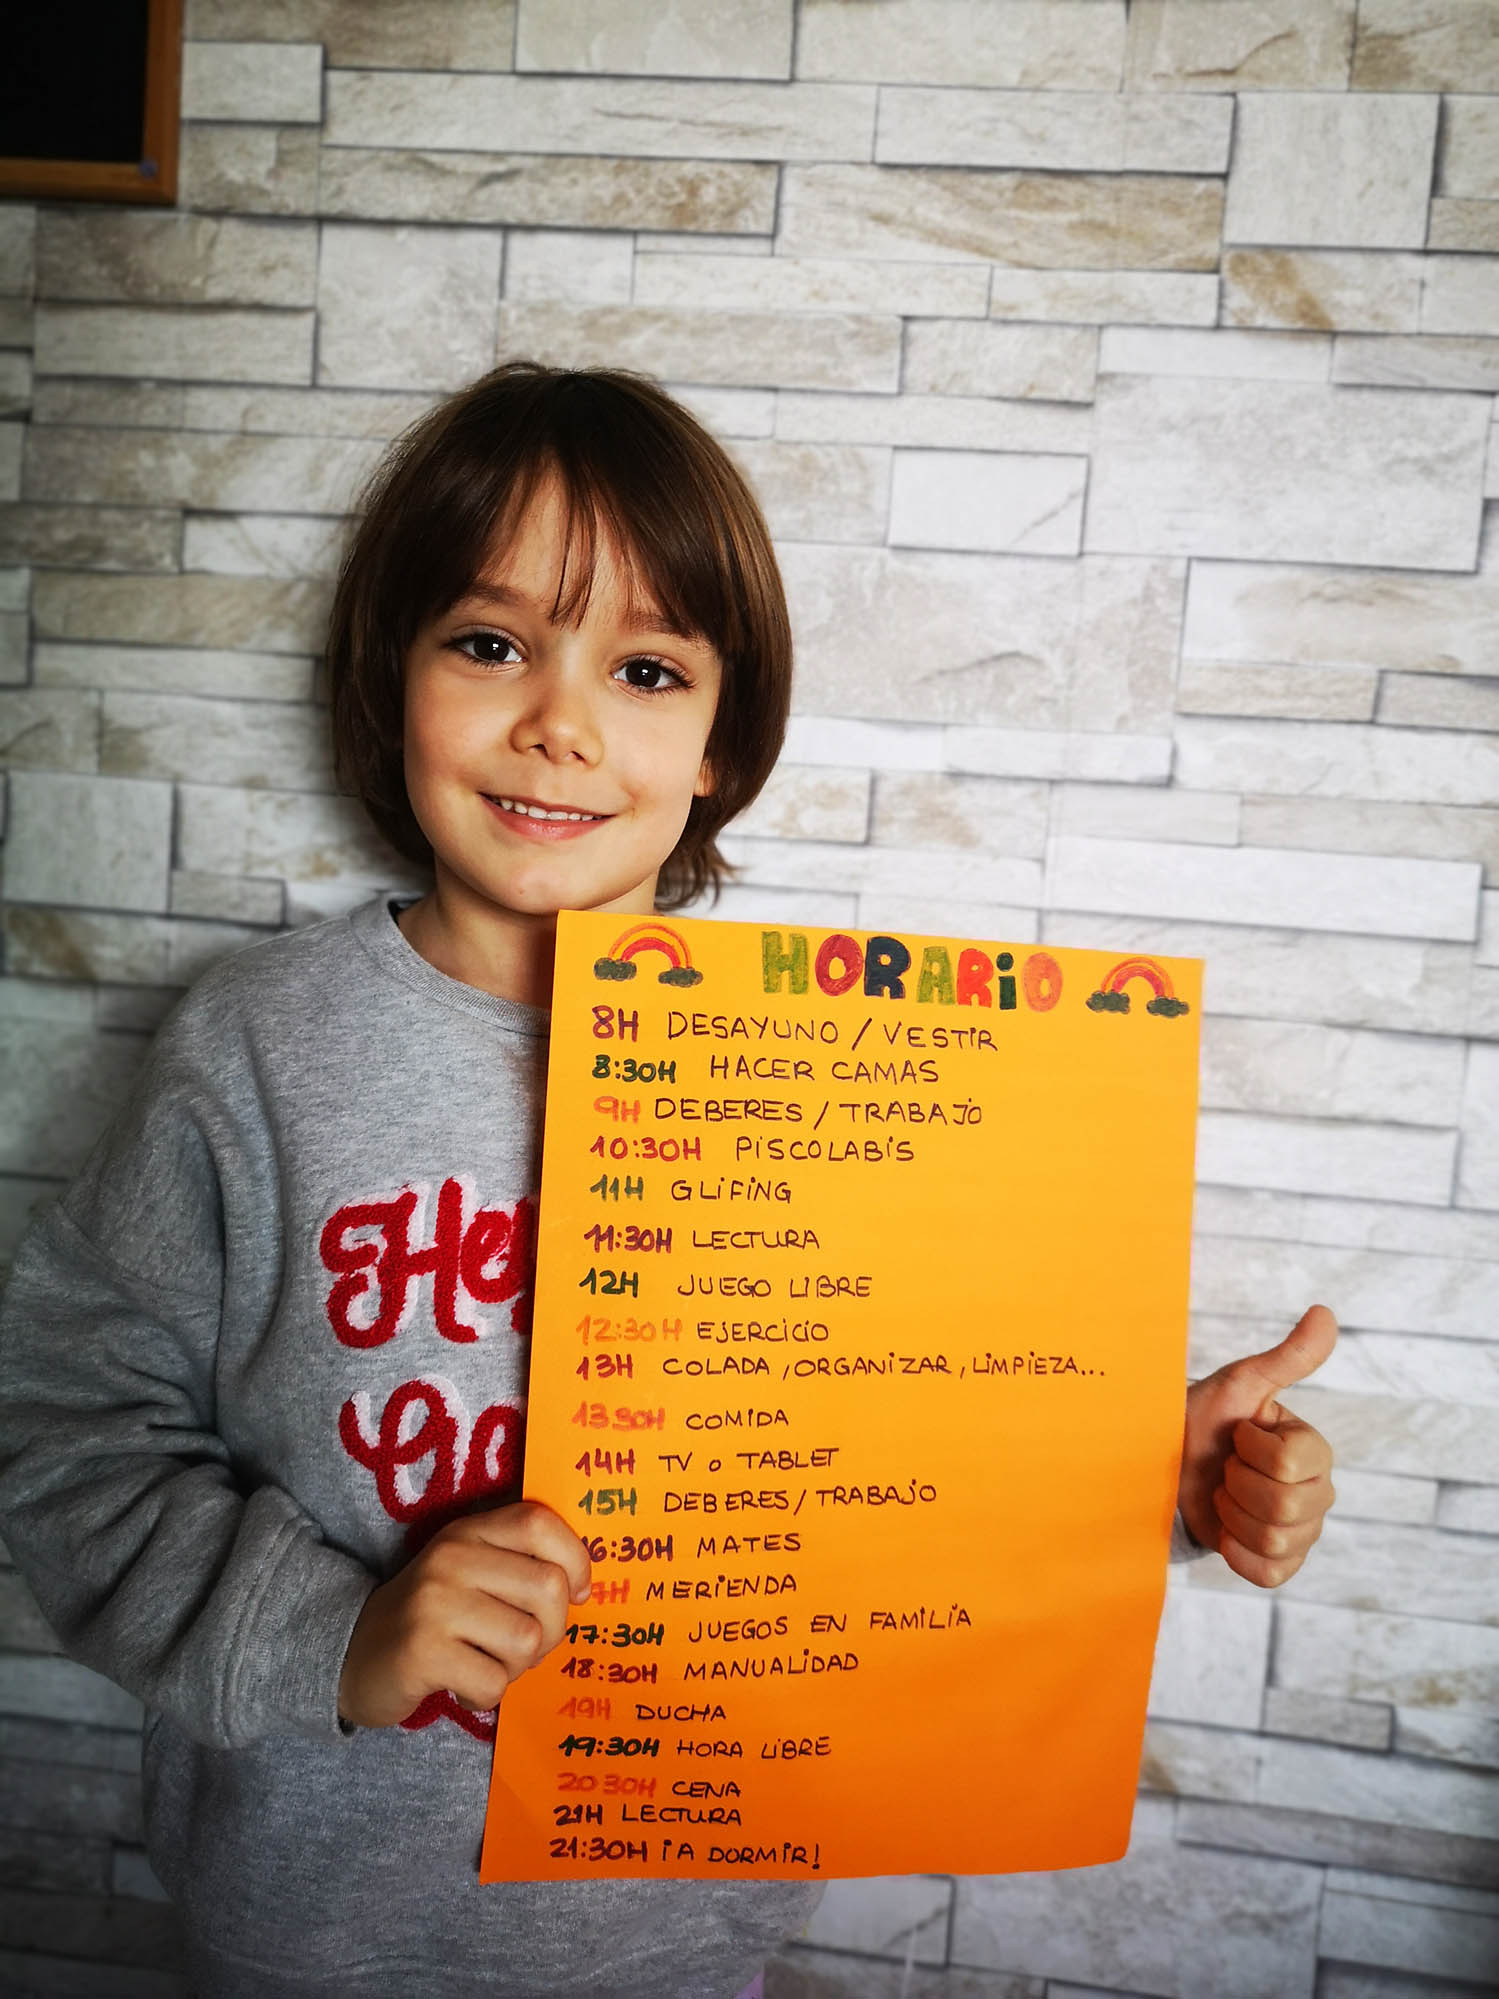 HORARIO
8H DESAYUNO / VESTIR
8:30H HACER CAMAS
9H DEBERES / TRABAJO
10:30H PISCOLABIS
11H GLIFING
11:30H LECTURA
12H JUEGO LIBRE
12:30H EJERCICIO
13H COLADA, ORGANIZAR, LIMPIEZA...
13 30H COMIDA
14H TV o TABLET
15H DEBERES / TRABAJO
6:30H MATES
7H MERIENDA
17:30H JUEGOS EN FAMILIA
18:30H MANUALIDAD
19H DUCHA
19:30H HORA LIBRE
20 30H CENA
21H LECTURA
21:30H ¡A DORMIR!